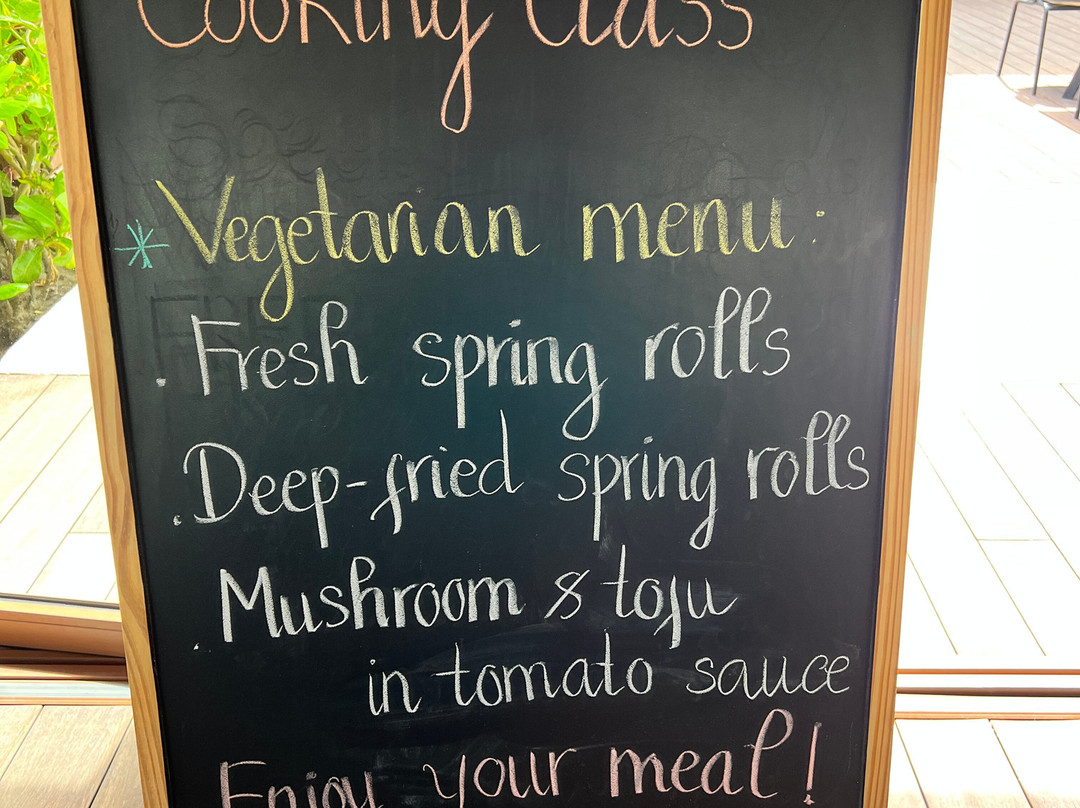 Cooking Class
* Vegetarian menu:
. Fresh spring rolls
. Deep-fried spring rolls
. Mushroom & tofu
in tomato sauce
Enjoy your meal!